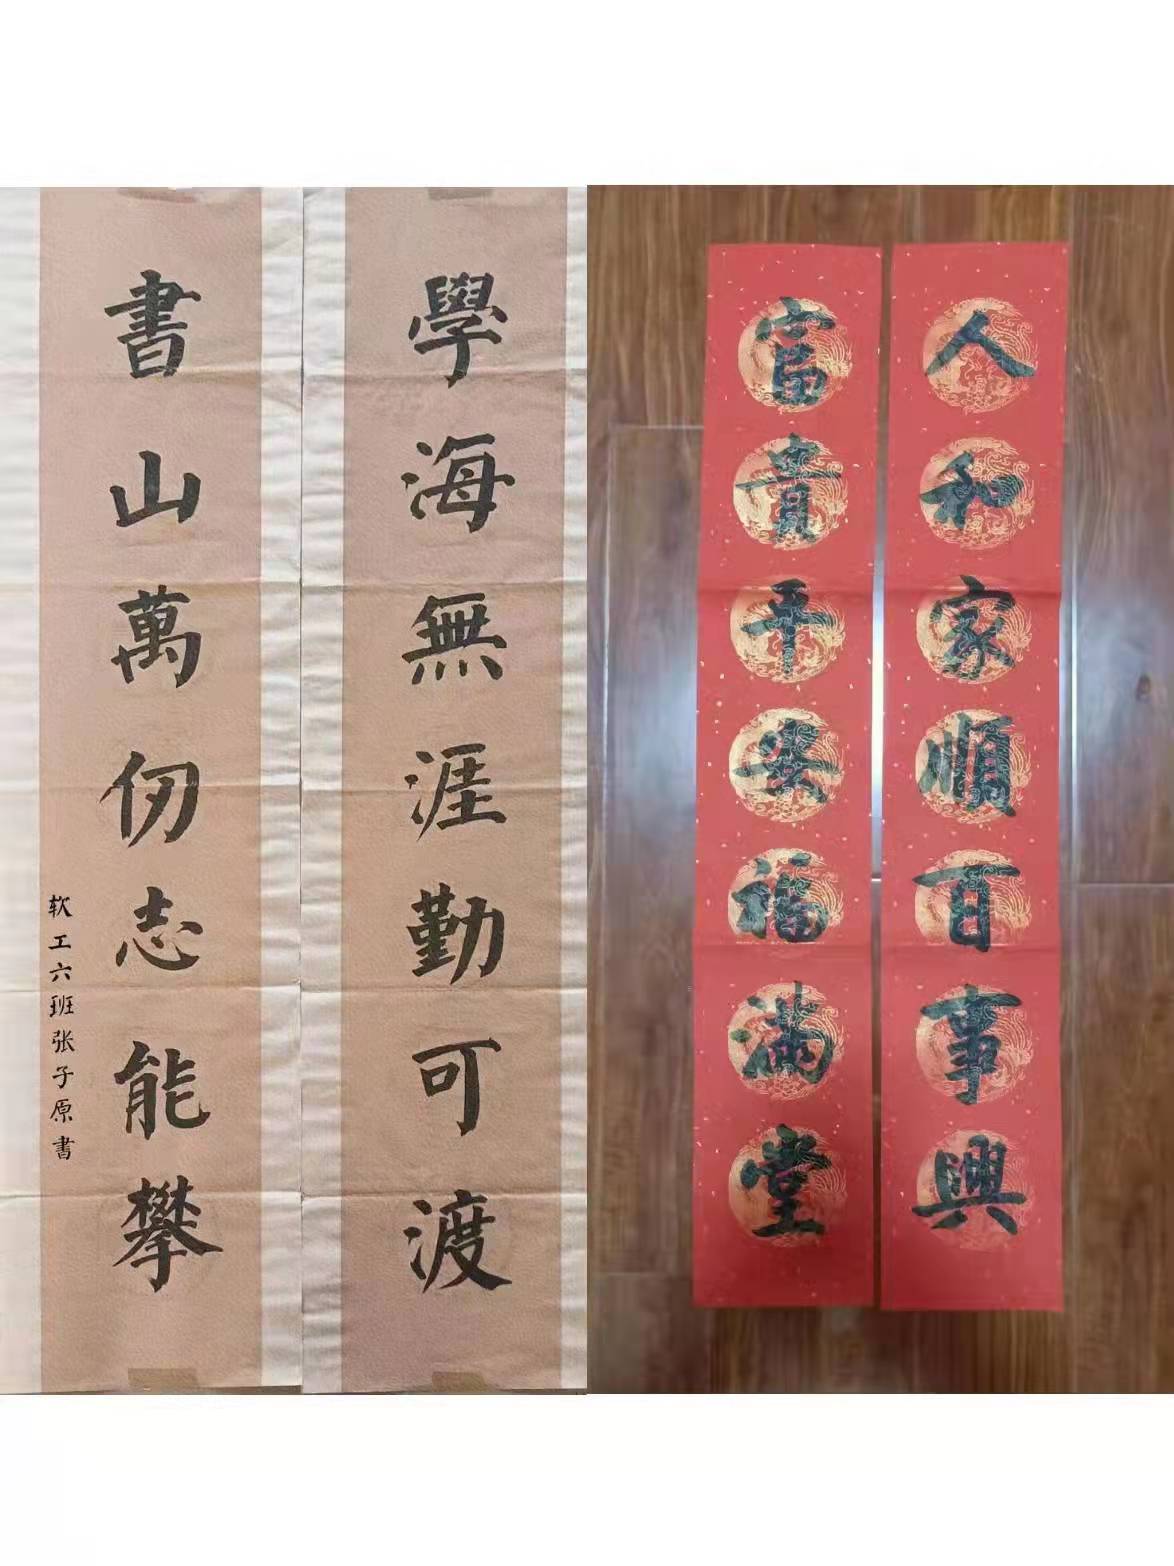 學海無涯勤可渡
書山萬仞志能攀
软工六班张子原書
人和家順百事興
富貴平安福滿堂